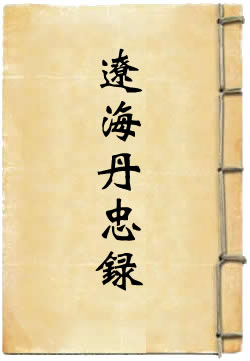 遼海丹忠録